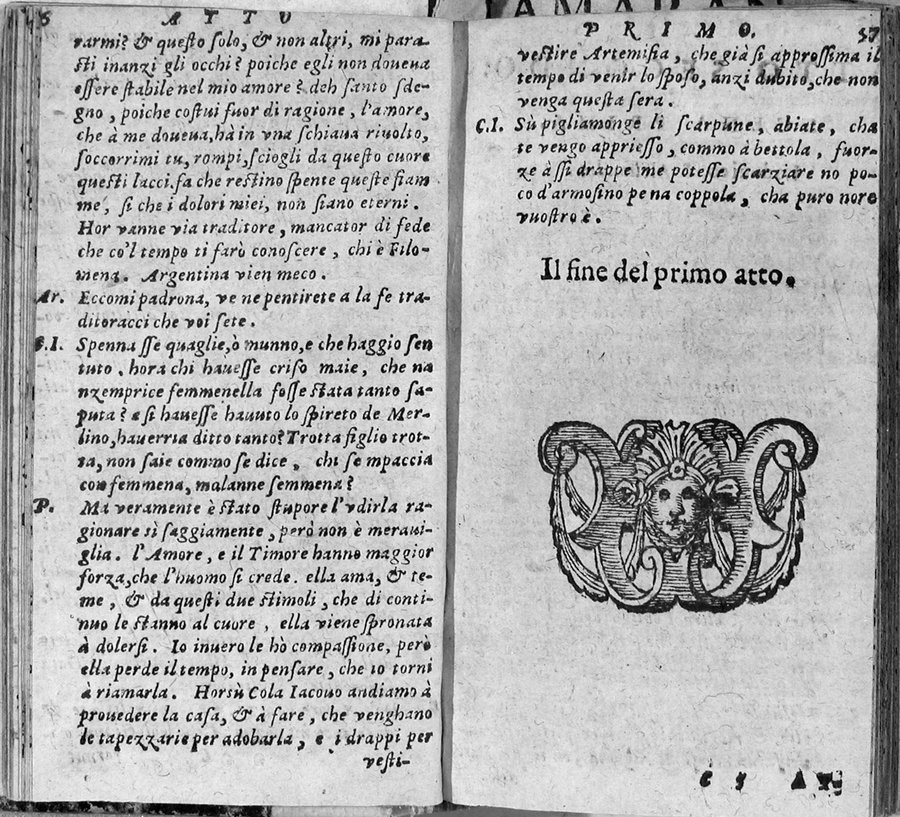 ATTO
rarmi? & questo solo, & non altri, mi para-
sti inanzi gli occhi? poiche egli non doueua
essere stabile nel mio amore? deh santo sde-
gno, poiche costui fuor di ragione, l'amore,
che à me doueua, hà in vna schiaua riuolto,
soccorrimi tu, rompi, sciogli da questo cuore
questi lacci. fa che restino spente queste fiam
me, si che i dolori miei, non siano eterni.
Hor vanne via traditore, mancator di fede
che co'l tempo ti farò conoscere, chi è Filo-
mena. Argentina vien meco.
Ar. Eccomi padrona, ve ne pentirete a la fe tra-
ditoracci che voi sete.
C.I. Spenna sse quaglie, ò munno, e che haggio sen
tuto. hora chi hauesse criso maie, che na
nzemprice femmenella fosse stata tanto sa-
puta? e si hauesse hauuto lo spireto de Mer-
lino, hauerria ditto tanto? Trotta figlio trot-
ta, non saie commo se dice, chi se mpaccia
con femmena, malanne semmena?
P. Ma veramente è stato stupore l'vdirla ra-
gionare sì saggiamente, però non è meraui-
glia. l'Amore, e il Timore hanno maggior
forza, che l'huomo si crede. ella ama, & te-
me, & da questi due stimoli, che di conti-
nuo le stanno al cuore, ella viene spronata
à dolersi. Io inuero le hò compassione, però
ella perde il tempo, in pensare, che io torni
à riamarla. Horsù Cola Iacouo andiamo à
prouedere la casa, & à fare, che venghano
le tapezzarie per adobarla, e i drappi per
vesti-
PRIMO. 57
vestire Artemisia, che già si approssima il
tempo di venir lo sposo, anzi dubito, che non
venga questa sera.
C.I. Sù pigliamonge li scarpune, abiate, cha
te vengo appriesso, commo à bettola, fuor-
ze à ssi drappe me potesse scarziare no po-
co d'armosino pe na coppola, cha puro nore
vuostro è.
Il fine del primo atto.
C 5